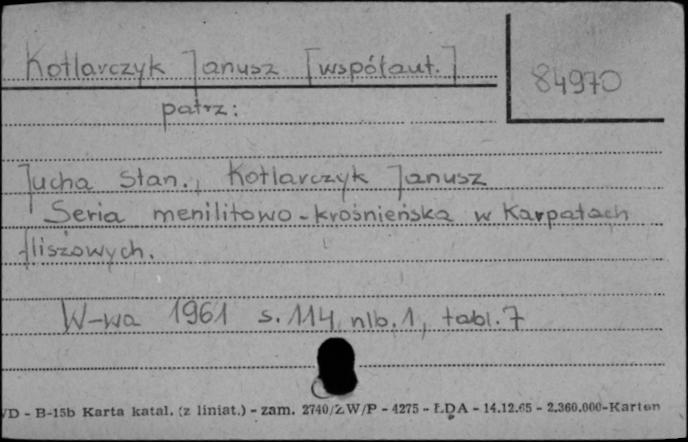 Kotlarczyk Janusz [współaut.]
84970
patrz:
Jucha Stan., Kotlarczyk Janusz
Seria menilitowo-krośnieńska w Karpatach
fliszowych.
W-wa 1961 s. 114, nlb. 1, tabl. 7
/D - B-15b Karta katal. (z liniat.) - zam. 2740/ZW/P - 4275 - ŁDA - 14.12.65 - 2.360.000-Karton